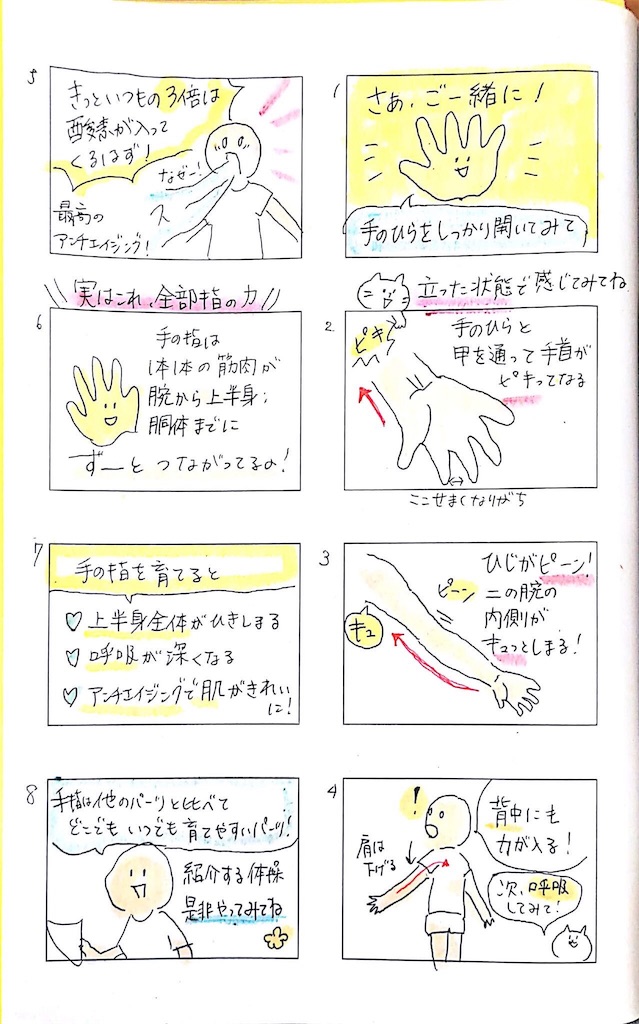 1
さぁ、ご一緒に！
手のひらをしっかり開いてみて
立った状態で感じてみてね
2
ピキ
手のひらと
甲を通って手首が
ピキってなる
ここせまくなりがち
3
ひじがピーン！
ピーン
二の腕の
内側が
キュッとしまる！
キュ
4
！
背中にも
力が入る！
肩は
下げる
次、呼吸
してみて！
5
きっといつもの3倍は
酸素が入って
くるはず！
なぜー！
ス
最高の
アンチエイジング！
実はこれ、全部指の力
6
手の指は
1本1本の筋肉が
腕から上半身；
胴体までに
ずーっと つながってるの！
7
手の指を育てると
上半身全体がひきしまる
呼吸が深くなる
アンチエイジングで肌がきれい
に！
8
手指は他のパーツと比べて
どこでもいつでも育てやすいパーツ！
紹介する体操
是非やってみてね